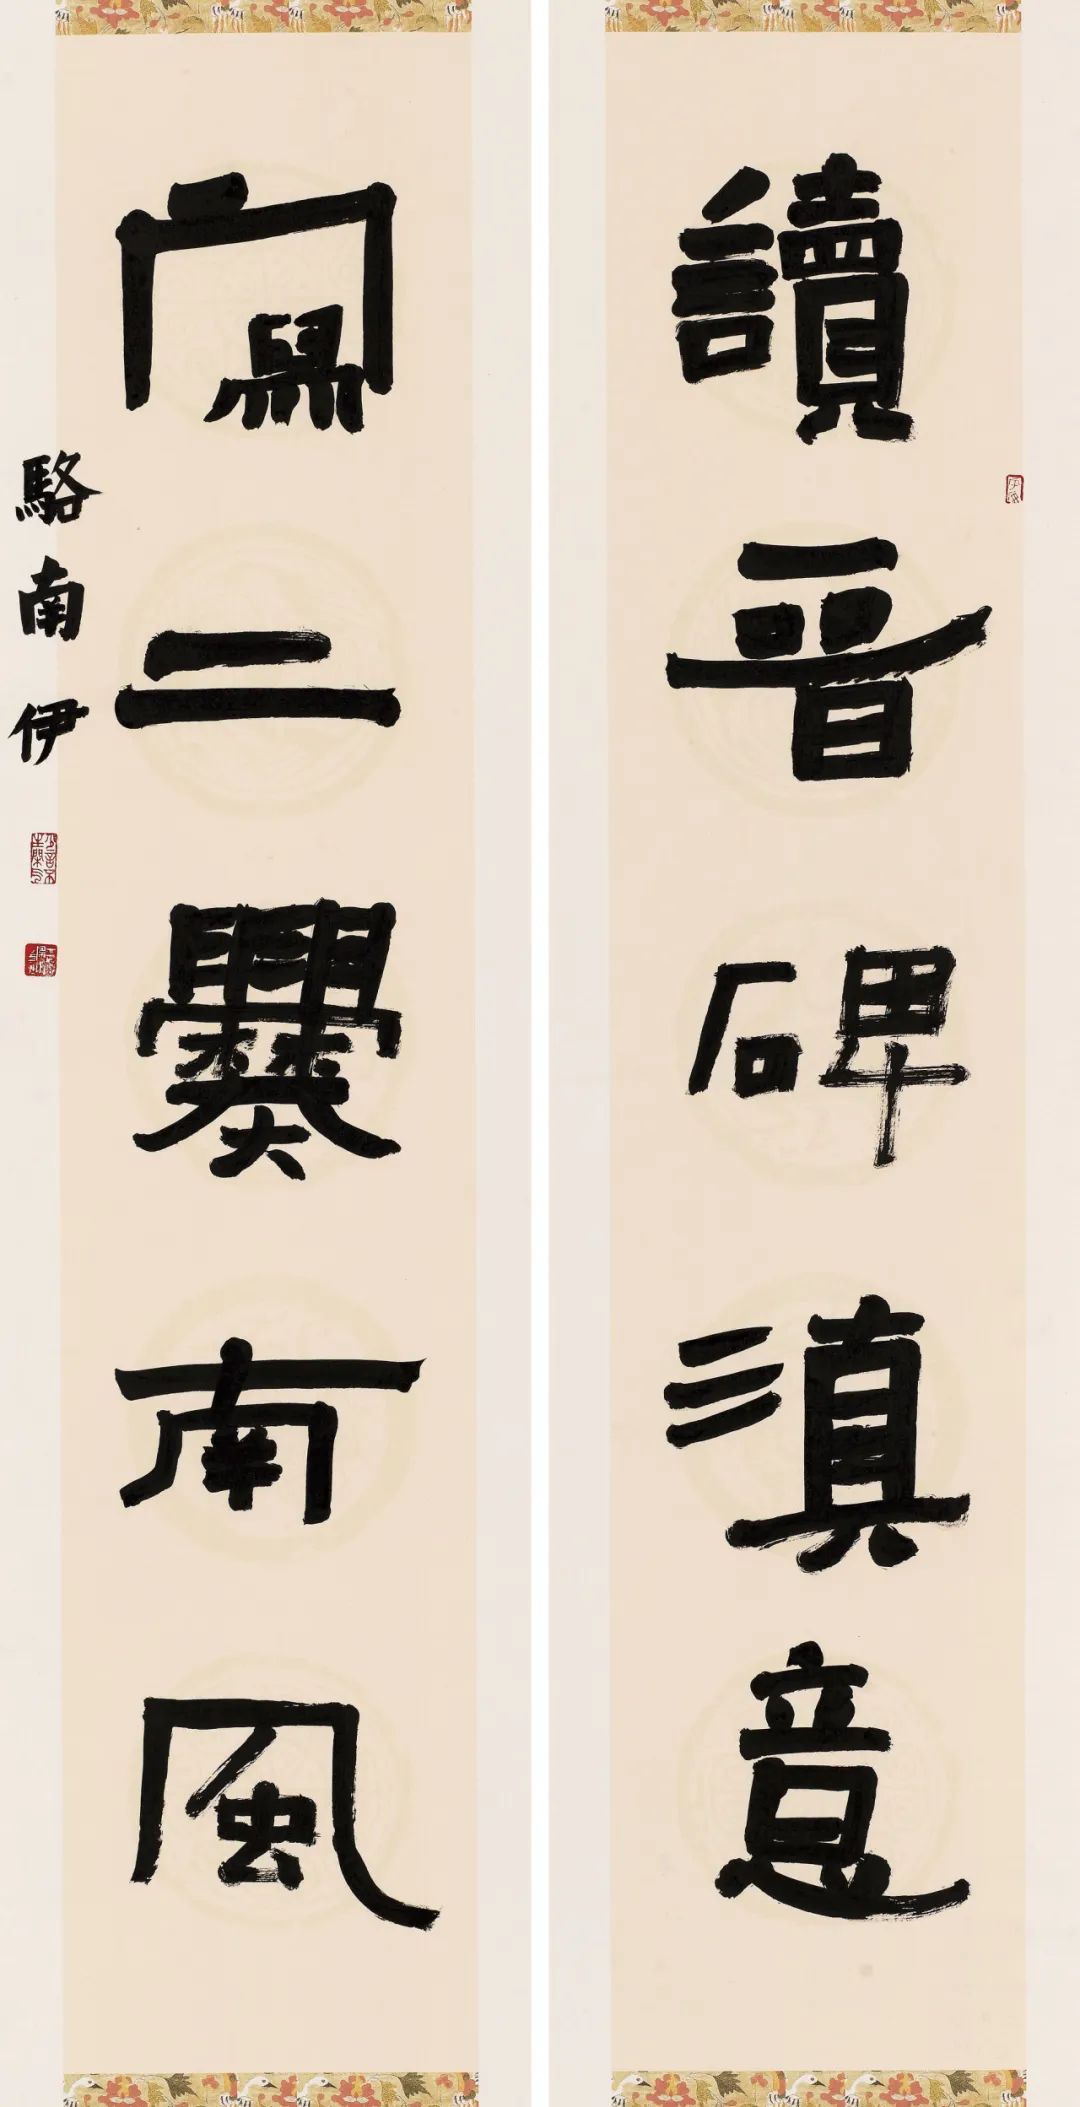 讀晉碑滇意
寫二爨南風
駱南伊